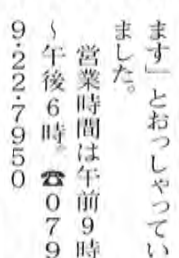 ます」とおっしゃってい
ました。
営業時間は午前9時
～午後6時。☎079
9・22・7950